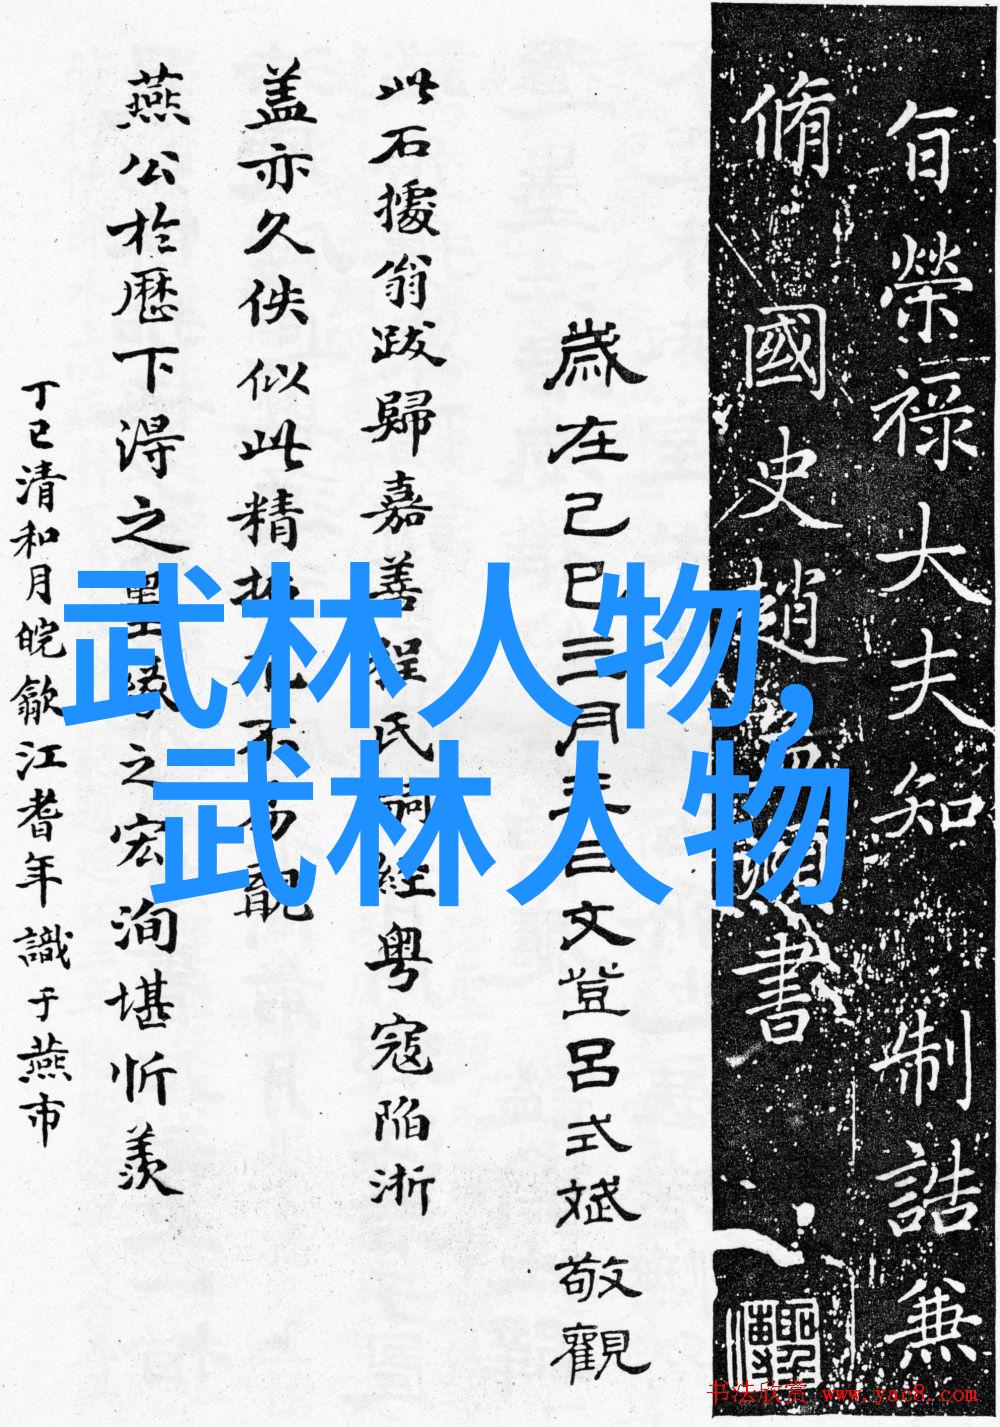 旨榮祿大夫知 制誥兼
脩國史趙孟頫書
歲在己巳三月三日文登呂式斌敬觀
此石據翁跋歸嘉善程氏嗣經粵寇陷浙
盖亦久佚似此精拓尤不易觀
燕公於歷下淂之墨緣之宏洵堪忻羨
丁巳清和月皖歙江耆年識于燕市
武林人物,
武林人物
书法欣赏 www.yac8.com